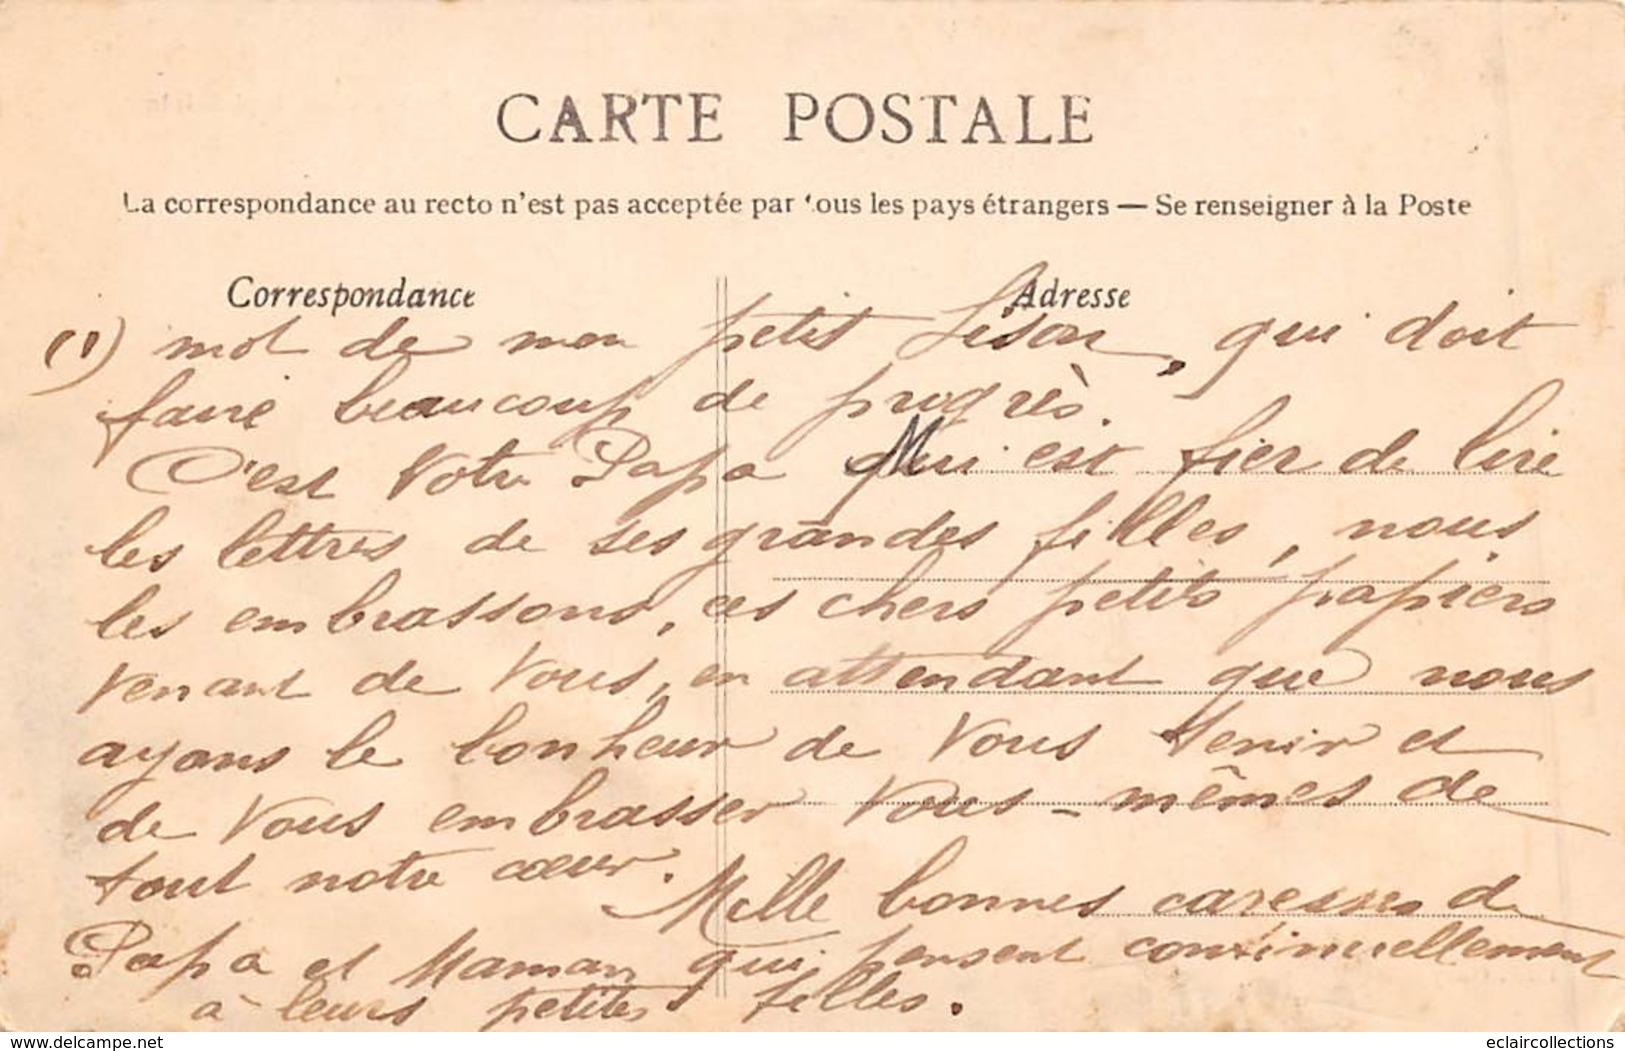 CARTE POSTALE
La correspondance au recto n'est pas acceptée par tous les pays étrangers — Se renseigner à la Poste
Correspondance Adresse
(1) mot de mon petit Lison, qui doit
faire beaucoup de progrès.
C'est votre Papa qui est fier de lire
les lettres de ses grandes filles, nous
les embrassons, ces chers petits papiers
venant de vous, en attendant que nous
ayons le bonheur de vous tenir et
de vous embrasser vous-mêmes de
tout notre cœur.
Mille bonnes caresses de
Papa et Maman qui pensent continuellement
à leurs petites filles.
www.delcampe.net eclaircollections